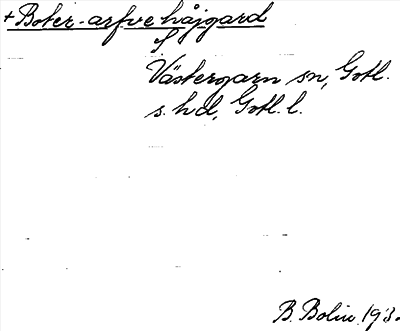 + Boter-arfve håjgard
Västergarn sn, Gotl.
s. hd, Gotl. l.
B. Bolin.